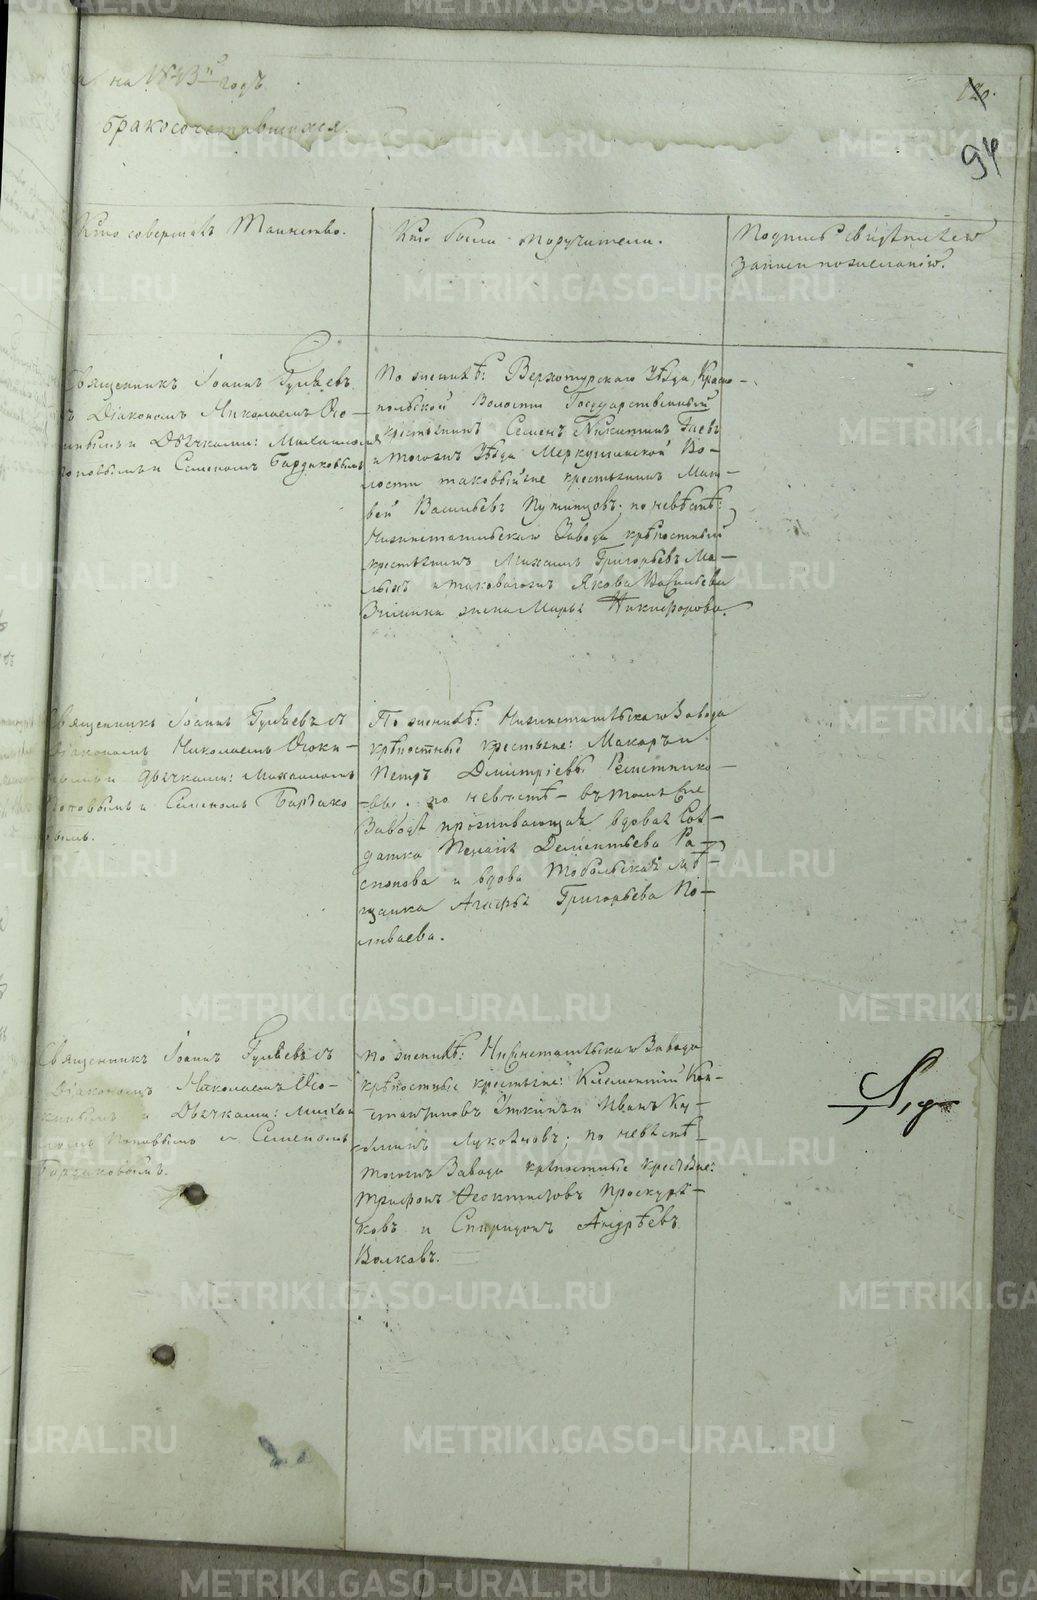 на 1843й годъ
бракосочетавшихся.
94
Кто совершалъ Таинство.
Кто были поручители.
Подпись свидѣтелей
записи по желанію.
Священникъ Іоаннъ Гуляевъ
съ Діакономъ Николаемъ
и Дьячками: Михаиломъ
Поповымъ и Семеномъ Бардаковымъ
По женихѣ: Верхотурскаго Уѣзда, Красно-
польской Волости Государственный
крестьянинъ Семенъ Никитинъ Гаевъ
и тогожъ Уѣзда Меркушинской Во-
лости таковыйже крестьянинъ Мат-
вей Васильевъ Путинцовъ; по невѣстѣ:
Нижнетагильскаго Завода крѣпостный
крестьянинъ Михаилъ Григорьевъ Ма-
лыхъ и таковагожъ Якова Васильева
жена Марья Никифорова.
Священникъ Іоаннъ Гуляевъ съ
Діакономъ Николаемъ
и дьячками: Михаиломъ
Поповымъ и Семеномъ Бардако
вымъ.
По женихѣ: Нижнетагильскаго Завода
крѣпостные крестьяне: Макаръ и
Петръ Димитріевы
вы. по невѣстѣ - въ томъ же
Заводѣ проживающая вдовая Сол-
датка Пелагія Дементьева Ра-
спопова и вдова Тобольская мѣ-
щанка Агафья Григорьева По-
ливаева.
Священникъ Іоаннъ Гуляевъ съ
Діакономъ Николаемъ
и Дьячками: Миха
иломъ Поповымъ и Семеномъ
Бардаковымъ.
по женихѣ: Нижнетагильскаго Завода
крѣпостные крестьяне: Климентій Кон-
стантиновъ Уткинъ и Иванъ Ку-
Лукояновъ; по невѣстѣ
тогожъ Завода крѣпостные крестьяне:
Трифонъ Феоктистовъ Проскуря-
ковъ и Спиридонъ Андреевъ
Волковъ.
METRIKI.GASO-URAL.RU